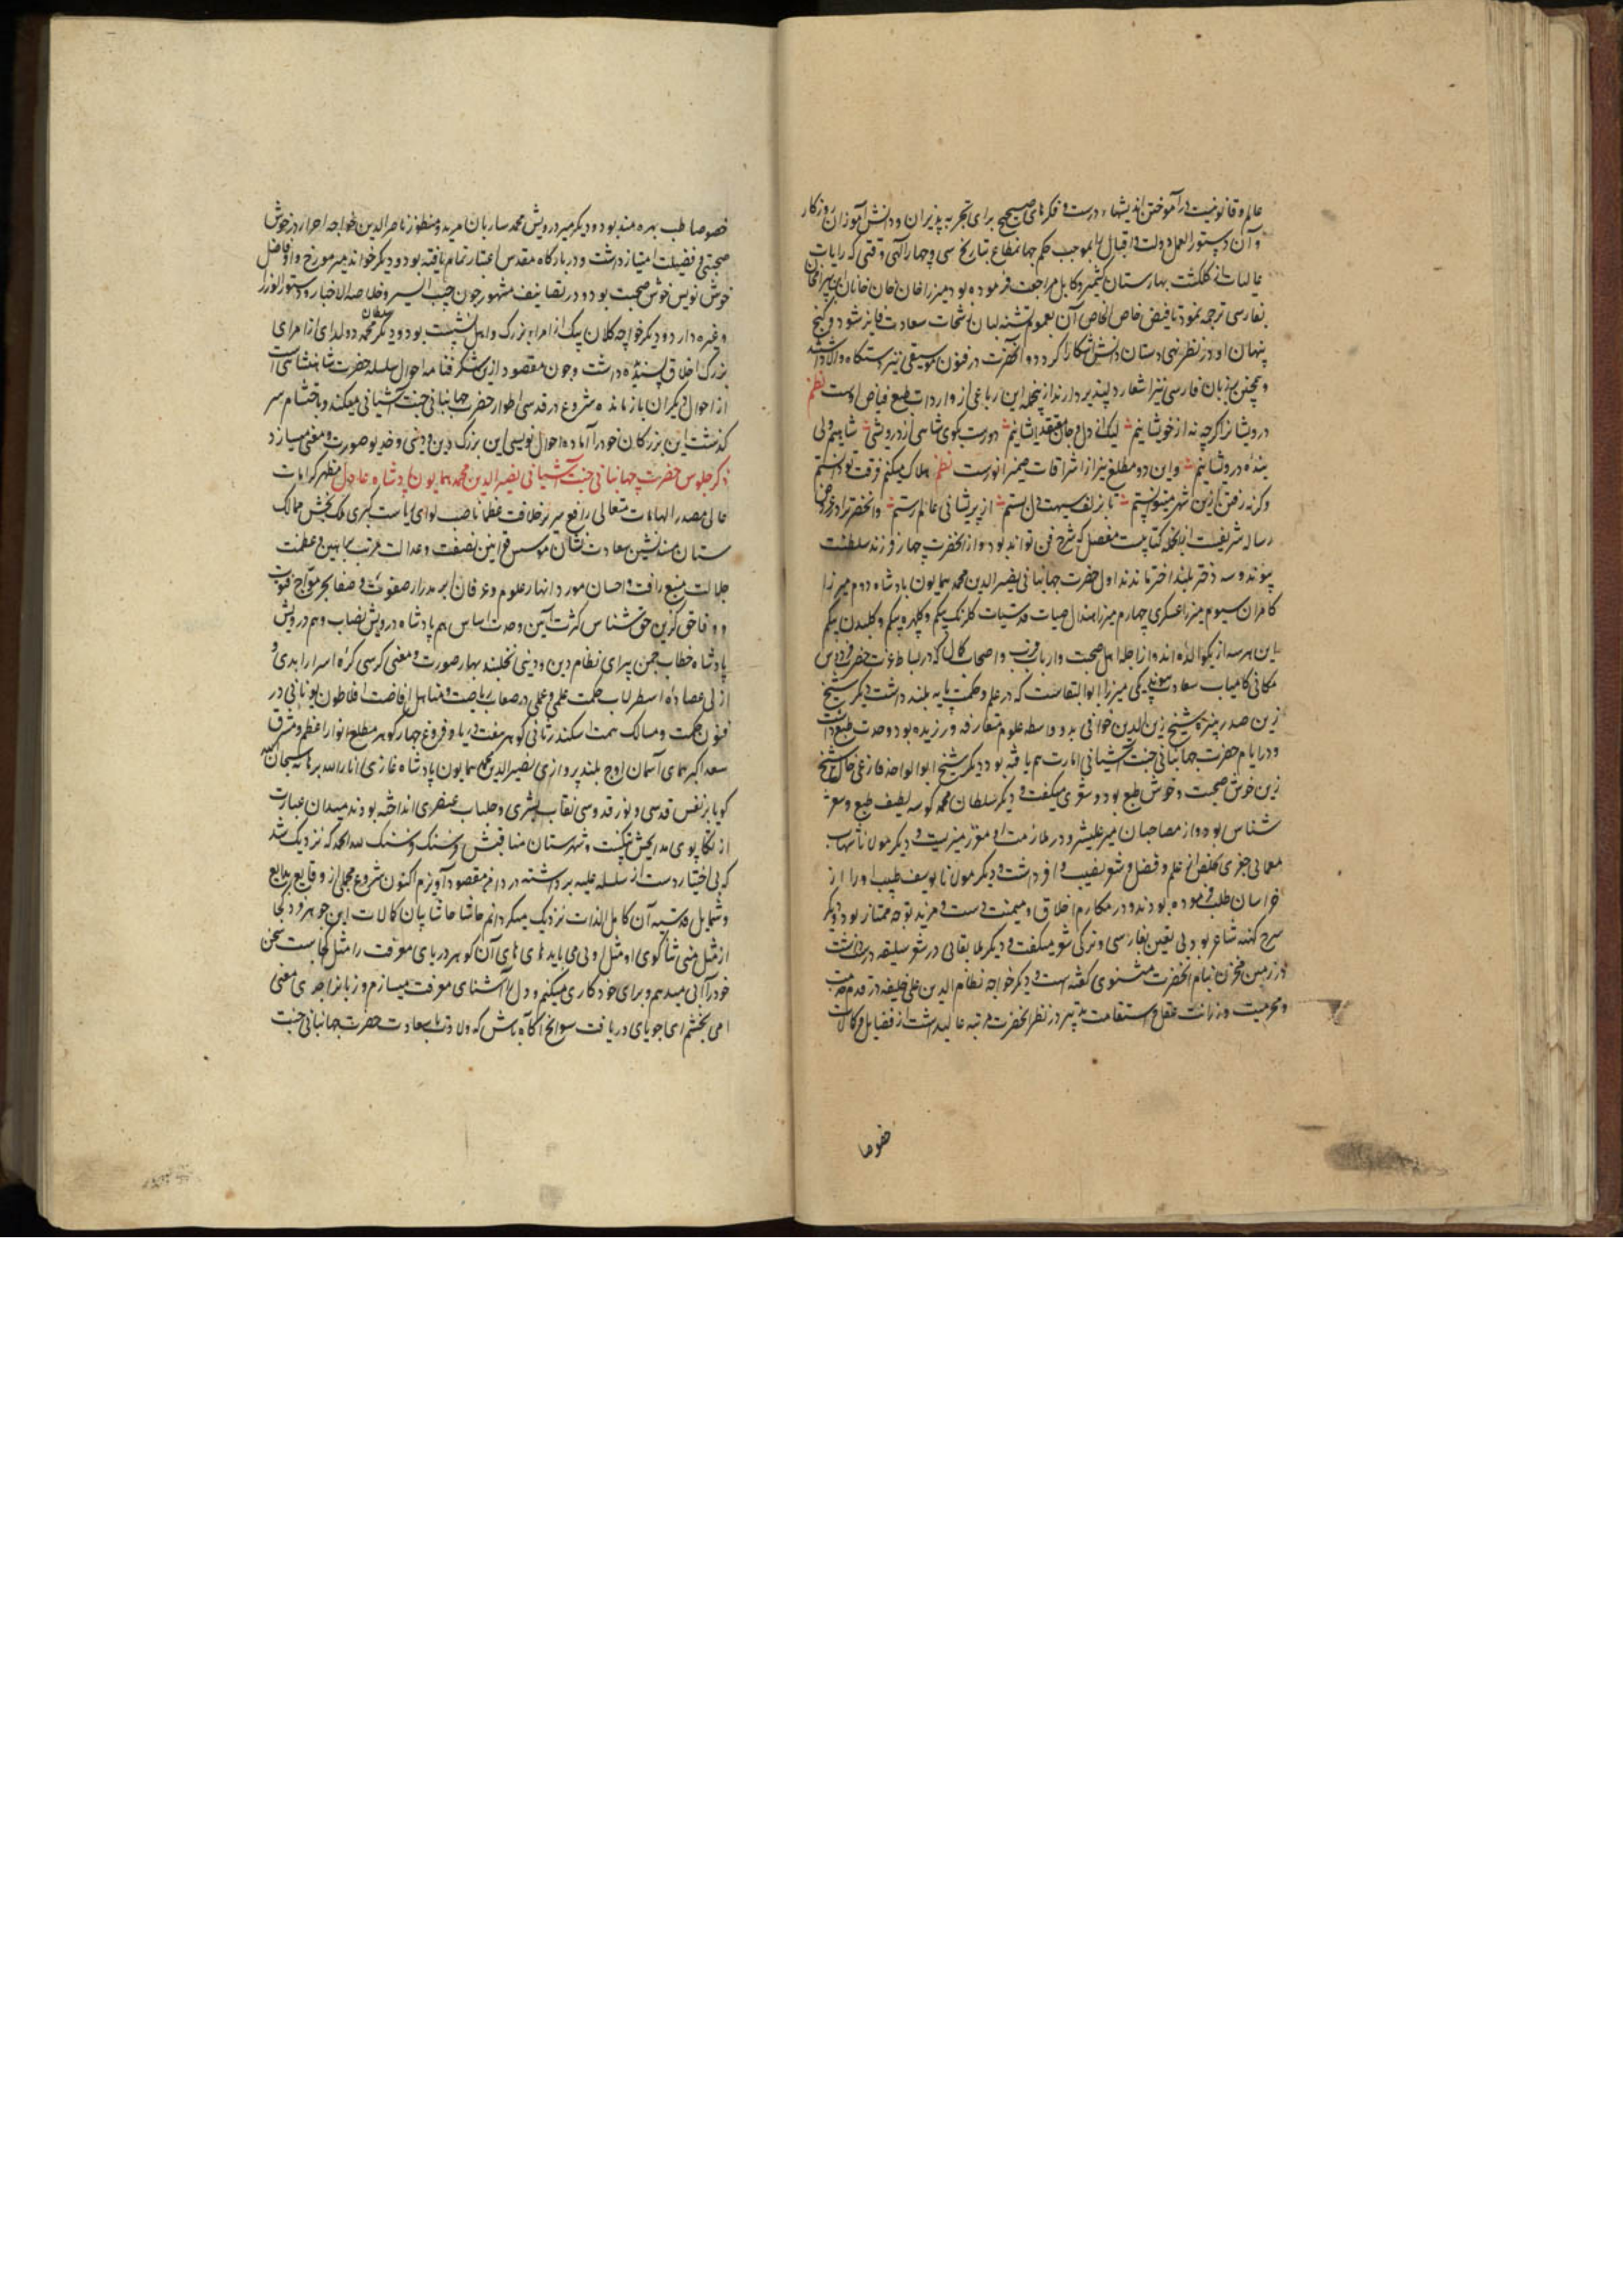 عالم و قانونیست در آموختن اندیشهاء درست و فکرهای صحیح برای تجربه پذیران و دانش آموزان روزکار
و آن دستور العمل دولت و اقبال را بموجب حکم جهانمطاع بتاریخ سی و چهار الهی وقتی که رایات
عالیات از کلکشت بهارستان کشمیر و کابل مراجعت فرموده بود میرزا خان خان خانان ابن بیرامخان
بفارسی ترجمه نمود تا فیض خاص الخاص آن بعموم تشنه لبان رشحات سعادت فایز شود و کنج
پنهان او در نظر تهی دستان دانش آشکارا کردد و آنحضرت در فنون موسیقی نیز دستکاه والا داشتند
و همچنین بزبان فارسی نیز اشعار دلپذیر دارند از آنجمله این رباعی از واردات طبع فیاض اوست نظم
درویشانرا اکرچه نه از خویشانیم لیک از دل و جان معتقد ایشانیم دورست مکوی شاهی از درویشی شاهیم ولی
بنده درویشانیم و این دو مطلع نیز از اشراقات ضمیر انورست نظم هلاک میکندم فرقت تو دانستم
وکرنه رفتن ازین شهر میتوانستم تا بزلف سیهت دل بستم از پریشانی عالم رستم و آنحضرت را در عروض
رساله شریفست از آنجمله کتابیست مفصل که شرح فن تواند بود و از آنحضرت چهار فرزند سلطنت
پیوند و سه دختر بلند اختر ماندند اول حضرت جهانبانی نصیر الدین محمد همایون بادشاه دوم میرزا
کامران سیوم میرزا عسکری چهارم میرزا هندال صبیات قدسیات کلرنک بیکم و کلچهره بیکم و کلبدن بیکم
این هر سه از یک والده اند و از اجله اهل صحبت و ارباب قرب و اصحاب کمال که در بساط عزت حضرت فردوس
مکانی کامیاب سعادت بوده یکی میرزا ابوالبقاست که در علم و حکمت پایه بلند داشت دیکر شیخ
زین صدر نبیره شیخ زین الدین خوافی بدو واسطه علوم متعارفه ورزیده بود و حدت طبع داشت
و در ایام حضرت جهانبانی جنت آشیانی امارت هم یافته بود دیکر شیخ ابوالواجد فارغی خال شیخ
زین خوش صحبت و خوش طبع بود و شعری میکفت و دیکر سلطان محمد کوسه لطیف طبع و شعر
شناس بود و از مصاحبان میر علیشیر و در ملازمت او معزز میزیست دیکر مولانا شهاب
معمائی حقیری تخلص از علم و فضل و شعر نصیب وافر داشت و دیکر مولانا یوسف طبیب او را از
خراسان طلب فرموده بودند و در مکارم اخلاق و میمنت دست و مزید توجه ممتاز بود و دیکر
سرخ کهنه شاعر بود بی تعین بفارسی و ترکی شعر میکفت و دیکر ملا بقائی در شعر سلیقه درست داشت
در زمین مخزن بنام آنحضرت مثنوی کفته است و دیکر خواجه نظام الدین علی خلیفه در قدم خدمت
و محرمیت و رزانت عقل و استقامت تدبیر در نظر آنحضرت مرتبه عالی داشت از فضایل و کمالات
خصوصا
خصوصا طب بهره مند بود و دیکر میر درویش محمد ساربان مرید و منظور ناصر الدین خواجه احرار در خوش
صحبتی و فضیلت امتیاز داشت و در بارکاه مقدس اعتبار تمام یافته بود و دیکر خواندمیر مورخ و او فاضل
خوش نویس خوش صحبت بود و در تصانیف مشهور چون حبیب السیر و خلاصة الاخبار و دستور الوزرا
و غیره دارد و دیکر خواجه کلان بیک از امراء بزرک و اهل نشست بود و دیکر سلطان محمد دولدای از امرای
بزرک اخلاق پسندیده داشت و چون مقصود ازین شکرفنامه احوال سلسله حضرت شاهنشاهی است
از احوال دیکران بازمانده شروع در قدسی اطوار حضرت جهانبانی جنت آشیانی میکند و باختتام سر
کذشت این بزرکان خود را آماده احوال نویسی این بزرک دین و دنیی و خدیو صورت و معنی میسازد
ذکر جلوس حضرت جهانبانی جنت آشیانی نصیر الدین محمد همایون پادشاه عادل مظهر کرامات
عالی مصدر الهامات متعالی رافع سریر خلافت عظما ناصب لوای ریاست کبری ملک بخش ممالک
ستان مسند نشین سعادت نشان موسس قوانین نصفت و عدالت مرتب براهین عظمت
جلالت منبع رافت و احسان مورد انهار علوم و عرفان ابر مدرار صفوت و صفا بحر مواج فتوت
و وفا حق کزین حق شناس کثرت آیین وحدت اساس هم پادشاه درویش نصاب و هم درویش
پادشاه خطاب چمن پیرای نظام دین و دنیی نخلبند بهار صورت و معنی کرسی کره اسرار ابدی و
ازلی عضاده اسطرلاب حکمت علمی و عملی در صعاب ریاضت و مناهل افاضت افلاطون یونانی در
فنون حکمت و مسالک همت اسکندر ثانی کوهر هفت دریا و فروغ چهار کوهر مطلع انوار اعظم و مشرق
سعد اکبر همای آسمان اوج بلند پروازی نصیر الدین محمد همایون پادشاه غازی انار الله برهانه سبحان الله
کویا بر نفس قدسی و نور قدوسی نقاب بشری و جلباب عنصری انداخته بودند میدان عبارت
از تکاپوی مدایحش تنکست و شهرستان مناقبش فرسنک فرسنک لله الحمد که نزدیک شد
که بی اختیار دست از سلسله علیه برداشته در دامن مقصود آویزم اکنون شروع مجملی از وقایع بدایع
و شمایل قدسیه آن کامل الذات نزدیک میکردانم حاشا حاشا پایان کمالات این جوهر فرد کجا
از مثل منی ثناکوی او مثل اوئی می باید های های آن کوهر دریای معرفت را مثل کجاست سخن
خود را آبی میدهم و برای خود کاری میکنم و دل را آشنای معرفت میسازم و زبانرا جدی معنی
می بخشم ای جویای دریافت سوانح آکاه باش که ولادت با سعادت حضرت جهانبانی جنت